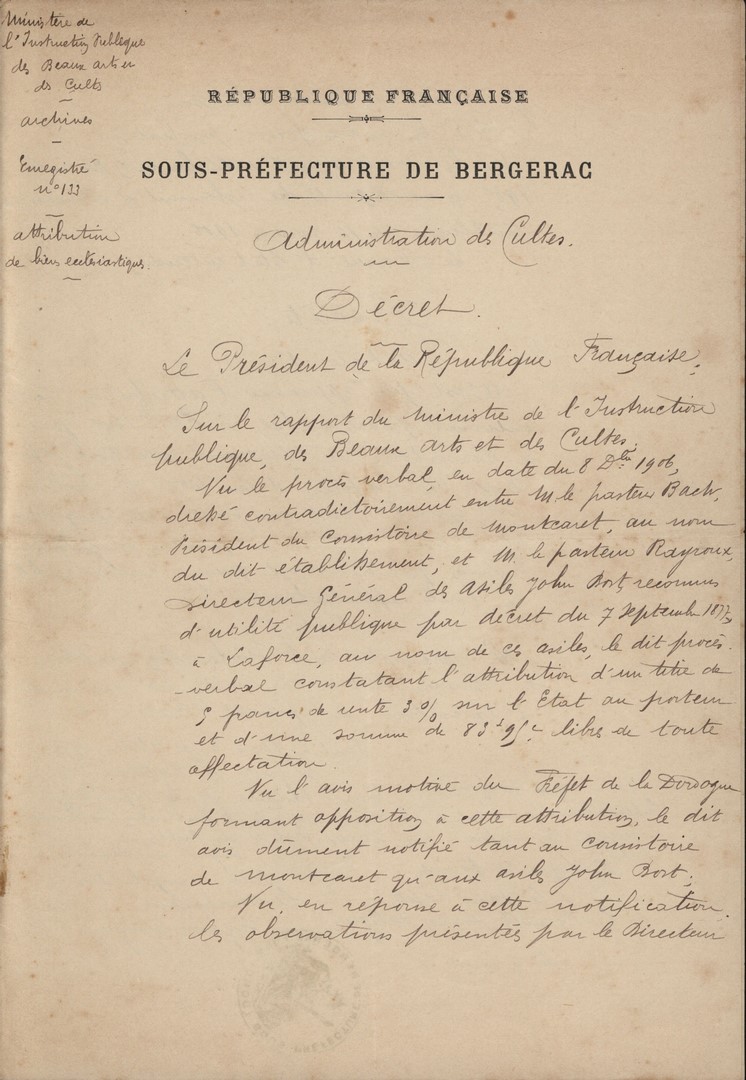 Ministère de
l'Instruction Publique
des Beaux arts et
des Cultes
archives
Enregistré
n° 133
attribution
de biens ecclésiastiques.
RÉPUBLIQUE FRANÇAISE
SOUS-PRÉFECTURE DE BERGERAC
Administration des Cultes.
Décret.
Le Président de la République Française,
Sur le rapport du Ministre de l'Instruction
publique, des Beaux arts et des Cultes;
Vu le procès verbal, en date du 8 Dbre 1906,
dressé contradictoirement entre M. le pasteur Bach,
Président du Consistoire de Montcaret, au nom
du dit établissement, et M. le pasteur Rayroux,
Directeur Général des Asiles John Bost, reconnus
d'utilité publique par décret du 7 Septembre 1877,
à Laforce, au nom de ces asiles, le dit procès-
-verbal constatant l'attribution d'un titre de
5 francs de rente 3 % sur l'Etat au porteur
et d'une somme de 83f 95c libres de toute
affectation.
Vu l'avis motivé du Préfet de la Dordogne
formant opposition à cette attribution, le dit
avis dûment notifié tant au consistoire
de Montcaret qu'aux asiles John Bost;
Vu, en réponse à cette notification,
les observations présentées par le Directeur